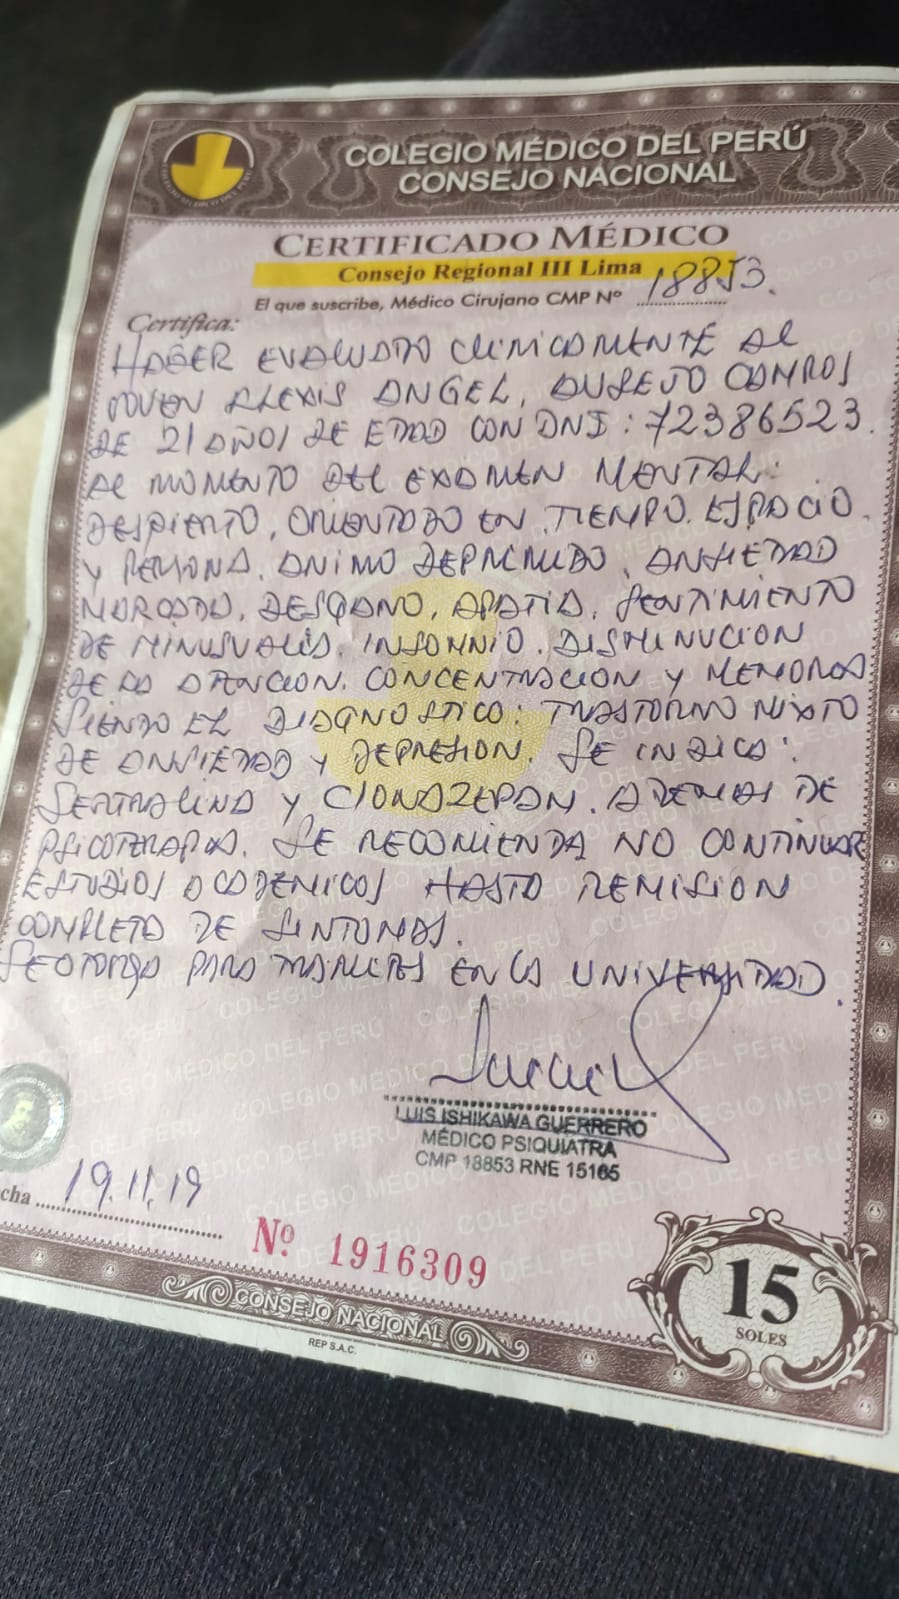 COLEGIO MÉDICO DEL PERÚ
CONSEJO NACIONAL
CERTIFICADO MÉDICO
Consejo Regional III Lima
El que suscribe, Médico Cirujano CMP Nº 18853.
Certifica:
HABER EVALUADO CLINICAMENTE AL
JOVEN ALEXIS ANGEL, AUSEJO CAMPOS
DE 21 AÑOS DE EDAD CON DNI: 72386523.
AL MOMENTO DEL EXAMEN MENTAL:
DESPIERTO, ORIENTADO EN TIEMPO. ESPACIO
Y PERSONA. ANIMO DEPRIMIDO, ANSIEDAD
MARCADA, DESGANO, APATIA, SENTIMIENTO
DE MINUSVALIA. INSOMNIO. DISMINUCION
DE LA ATENCION. CONCENTRACION Y MEMORIA
SIENDO EL DIAGNOSTICO: TRASTORNO MIXTO
DE ANSIEDAD Y DEPRESION. SE INDICA:
SERTRALINA Y CLONAZEPAN. ADEMAS DE
PSICOTERAPIA. SE RECOMIENDA NO CONTINUAR
ESTUDIOS ACADEMICOS HASTA REMISION
COMPLETA DE SINTOMAS.
SE OTORGA PARA TRAMITES EN LA UNIVERSIDAD.
LUIS ISHIKAWA GUERRERO
MÉDICO PSIQUIATRA
CMP 18853 RNE 15165
cha 19.11.19
Nº 1916309
CONSEJO NACIONAL
REP S.A.C.
15
SOLES